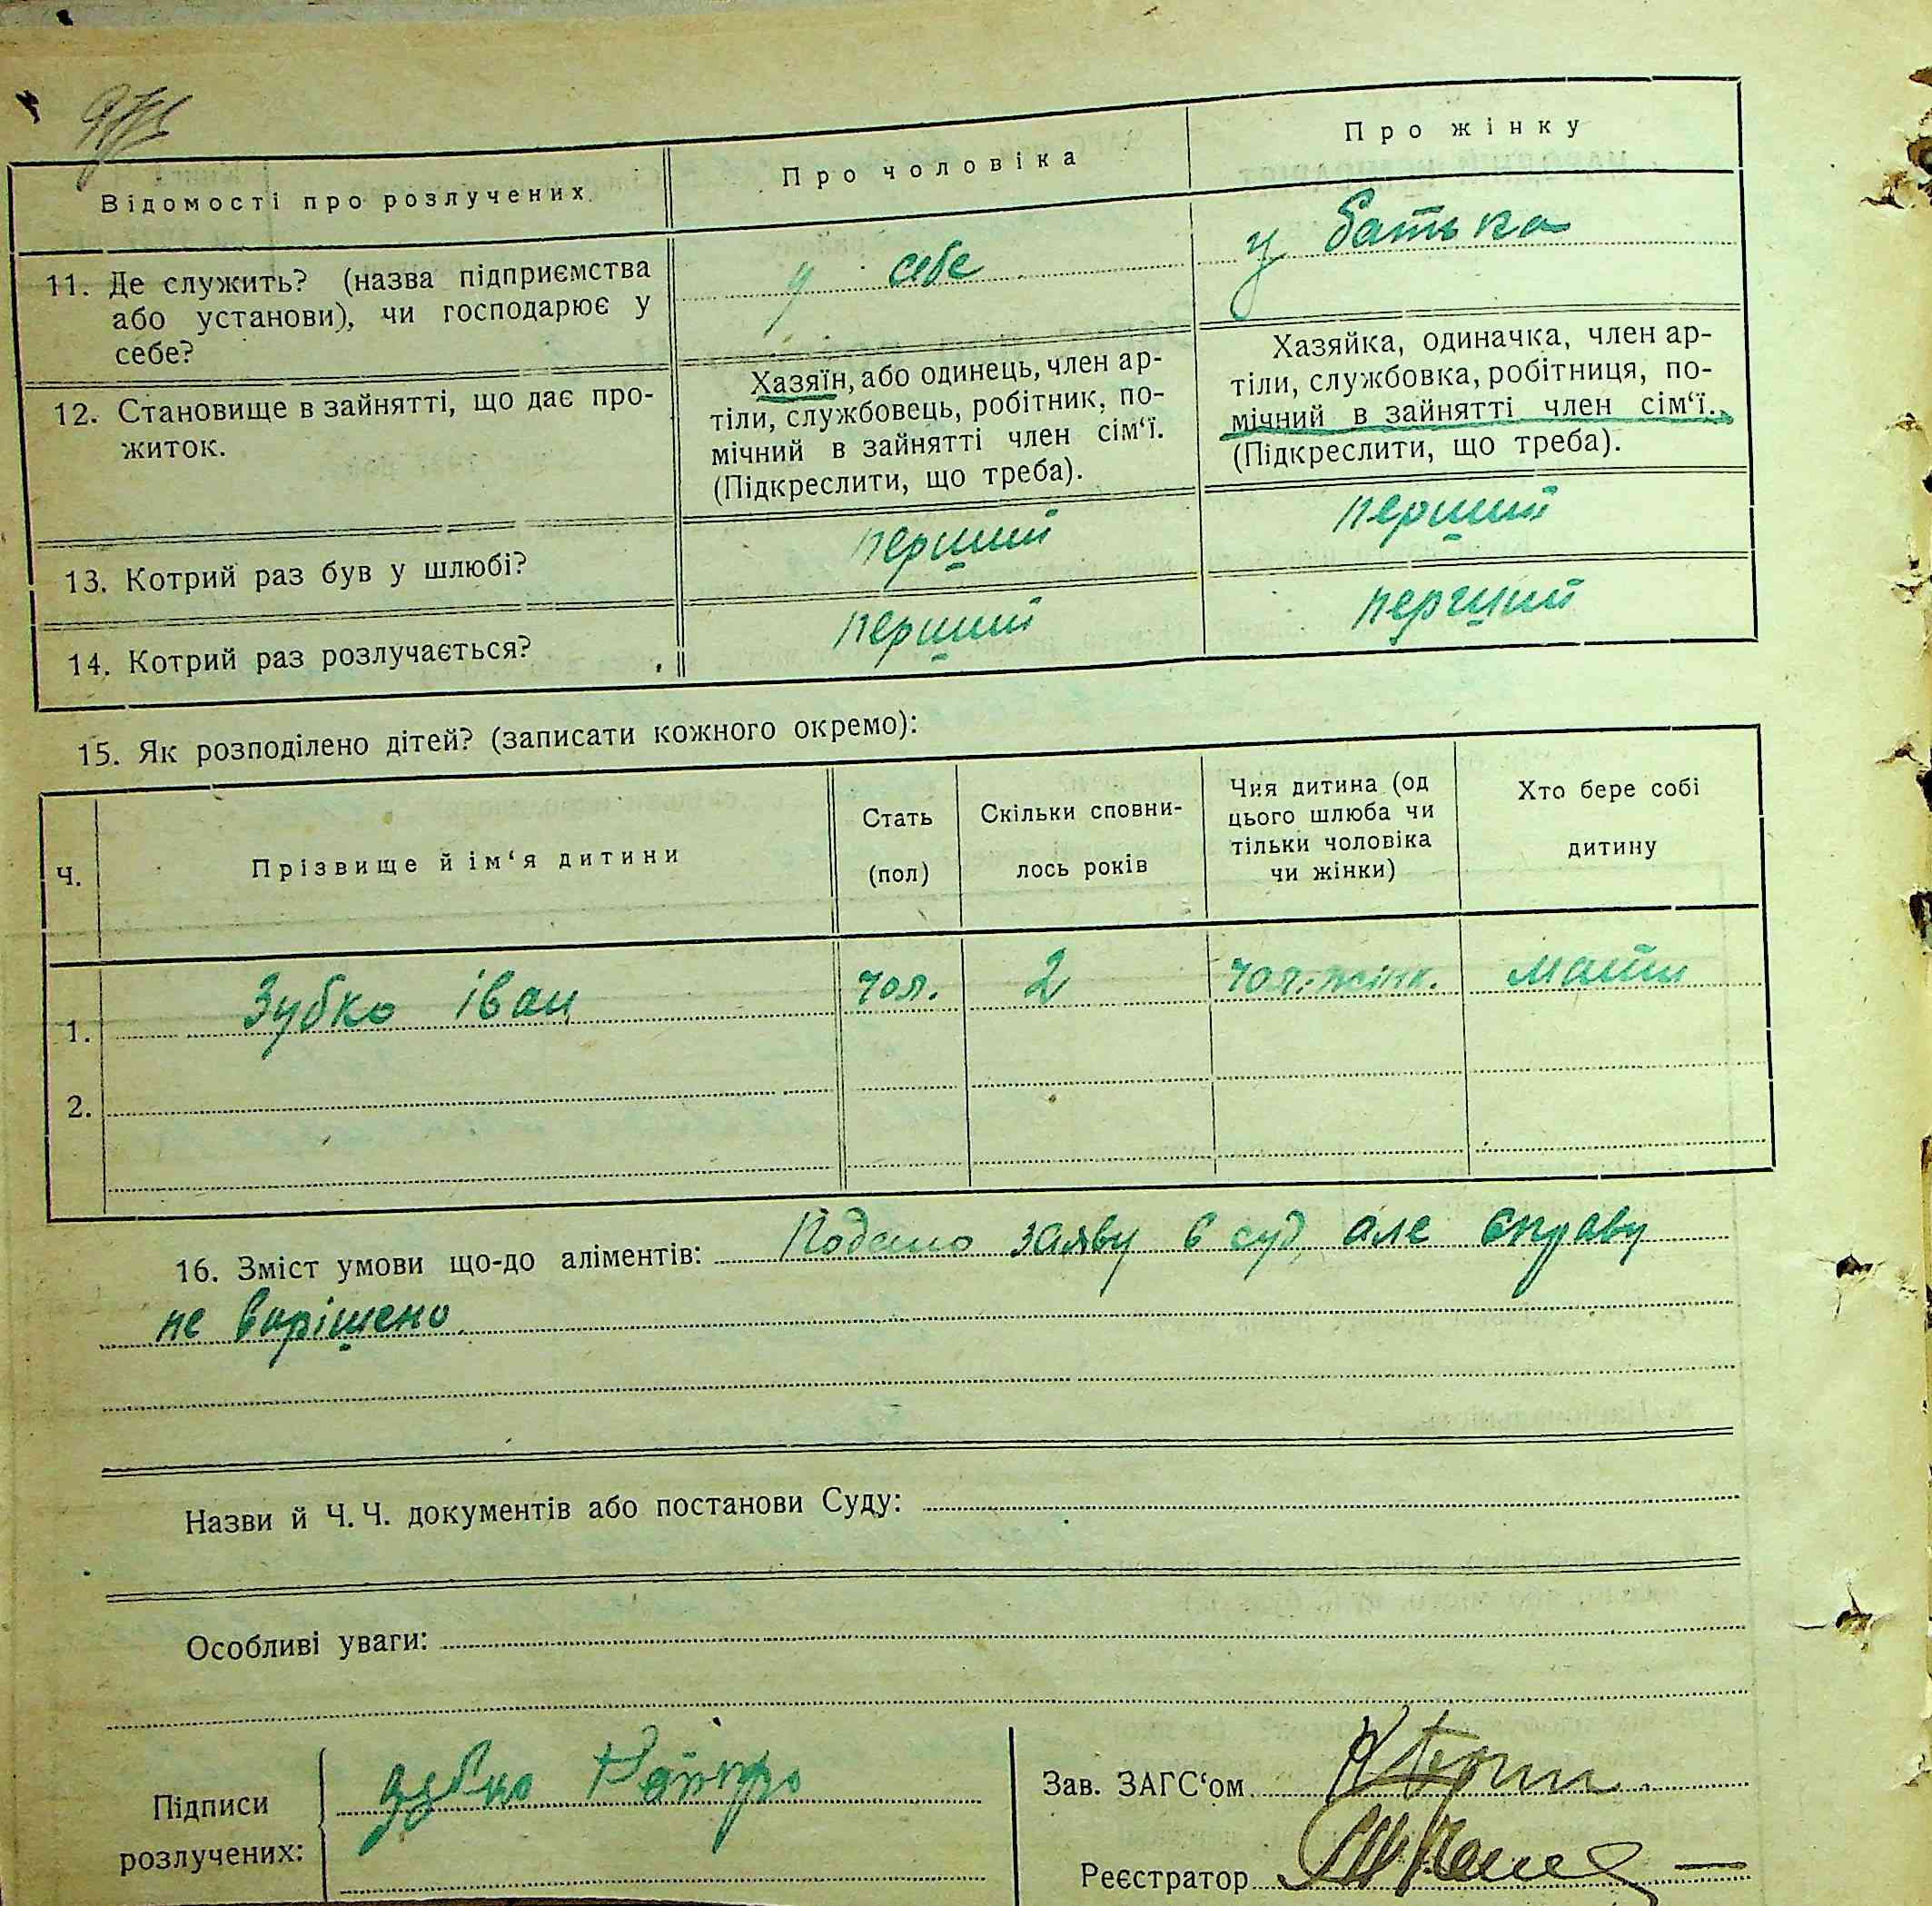 Відомості про розлучених
Про чоловіка
Про жінку
11. Де служить? (назва підприємства
або установи), чи господарює у
себе?
у себе
у батька
12. Становище в зайнятті, що дає про-
житок.
Хазяїн, або одинець, член ар-
тіли, службовець, робітник, по-
мічний в зайнятті член сім‘ї.
(Підкреслити, що треба).
Хазяйка, одиначка, член ар-
тіли, службовка, робітниця, по-
мічний в зайнятті член сім‘ї.
(Підкреслити, що треба).
13. Котрий раз був у шлюбі?
перший
перший
14. Котрий раз розлучається?
перший
перший
15. Як розподілено дітей? (записати кожного окремо):
Ч.
Прізвище й ім‘я дитини
Стать
(пол)
Скільки сповни-
лось років
Чия дитина (од
цього шлюба чи
тільки чоловіка
чи жінки)
Хто бере собі
дитину
1. Зубко Іван чол. 2 чол. жінк. мати
2.
16. Зміст умови що-до аліментів: Подано заяву в суд, але справу
не вирішено.
Назви й Ч. Ч. документів або постанови Суду:
Особливі уваги:
Підписи
розлучених:
Зубко
Зав. ЗАГС‘ом
Реєстратор